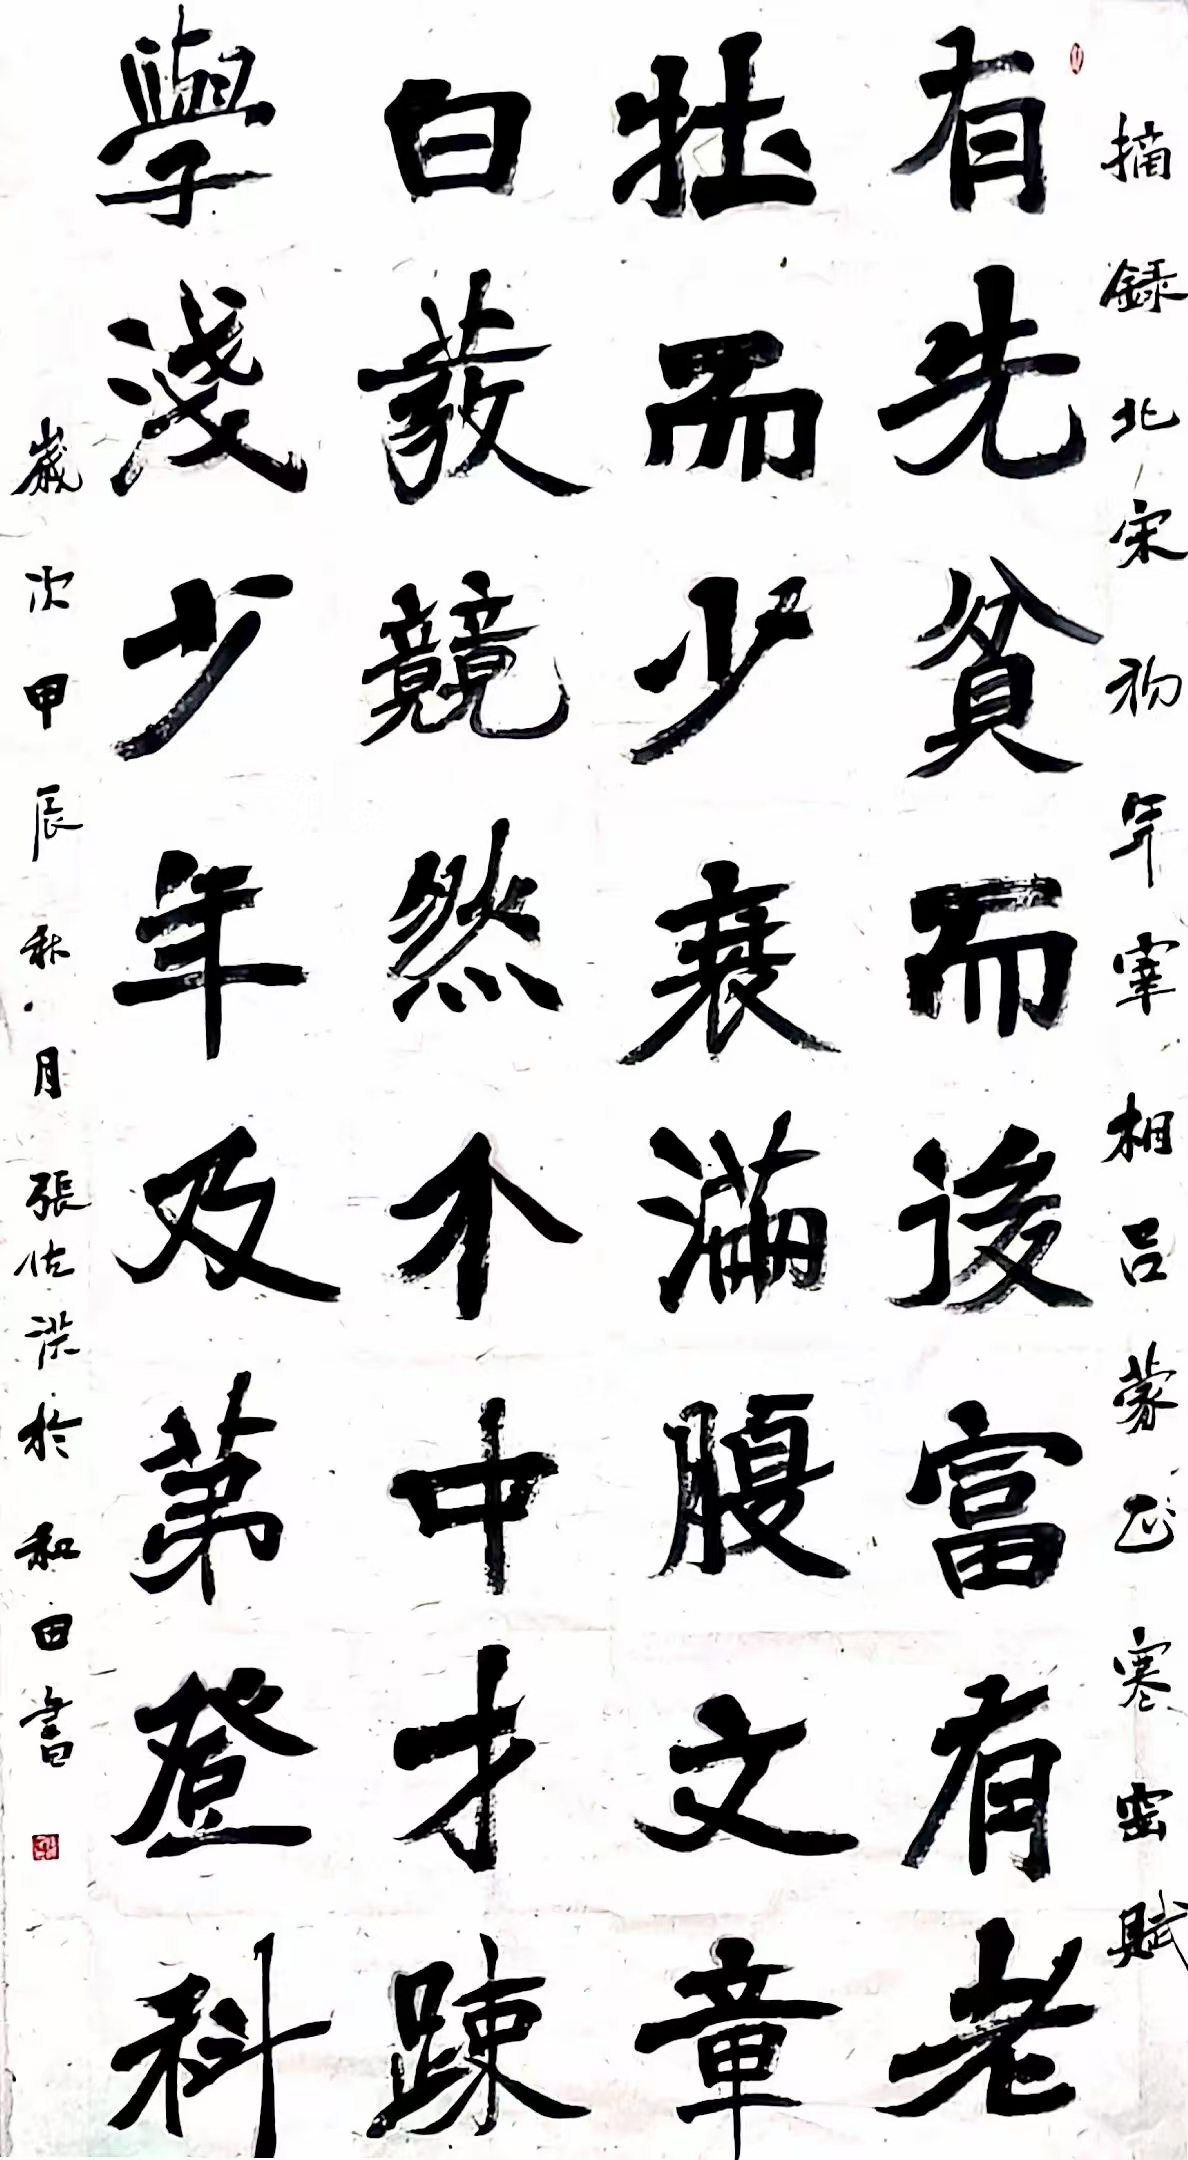 摘録北宋初年宰相吕蒙正寒窑賦
有先貧而後富有老
壮而少衰滿腹文章
白髮競然不中才踈
學淺少年及第登科
歳次甲辰秋月張佐 於和田書